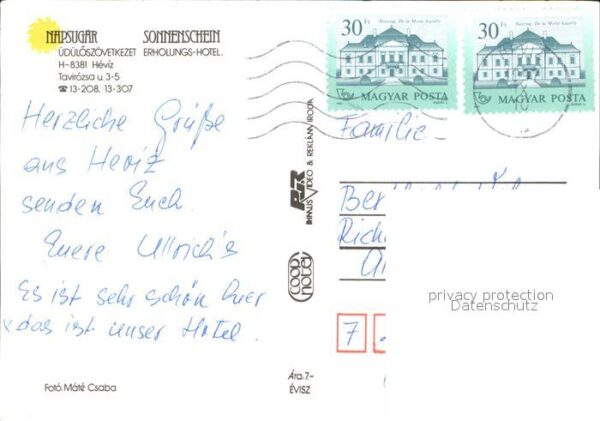 NAPSUGÁR SONNENSCHEIN
ÜDÜLŐSZÖVETKEZET ERHOLUNGS-HOTEL
H-8381 Hévíz
Tavirózsa u. 3-5
☎ 13-208, 13-307
Herzliche Grüße
aus Heviz
senden Euch.
Euere Ullrich's
Es ist sehr schön hier
x das ist unser Hotel.
Fotó: Máté Csaba
VIDEO & REKLÁMIRODA
COOP HOTEL
Ára: 7.-
ÉVISZ
30 Ft
MAGYAR POSTA
30 Ft
MAGYAR POSTA
Familie
Ber
Rich
7
privacy protection
Datenschutz